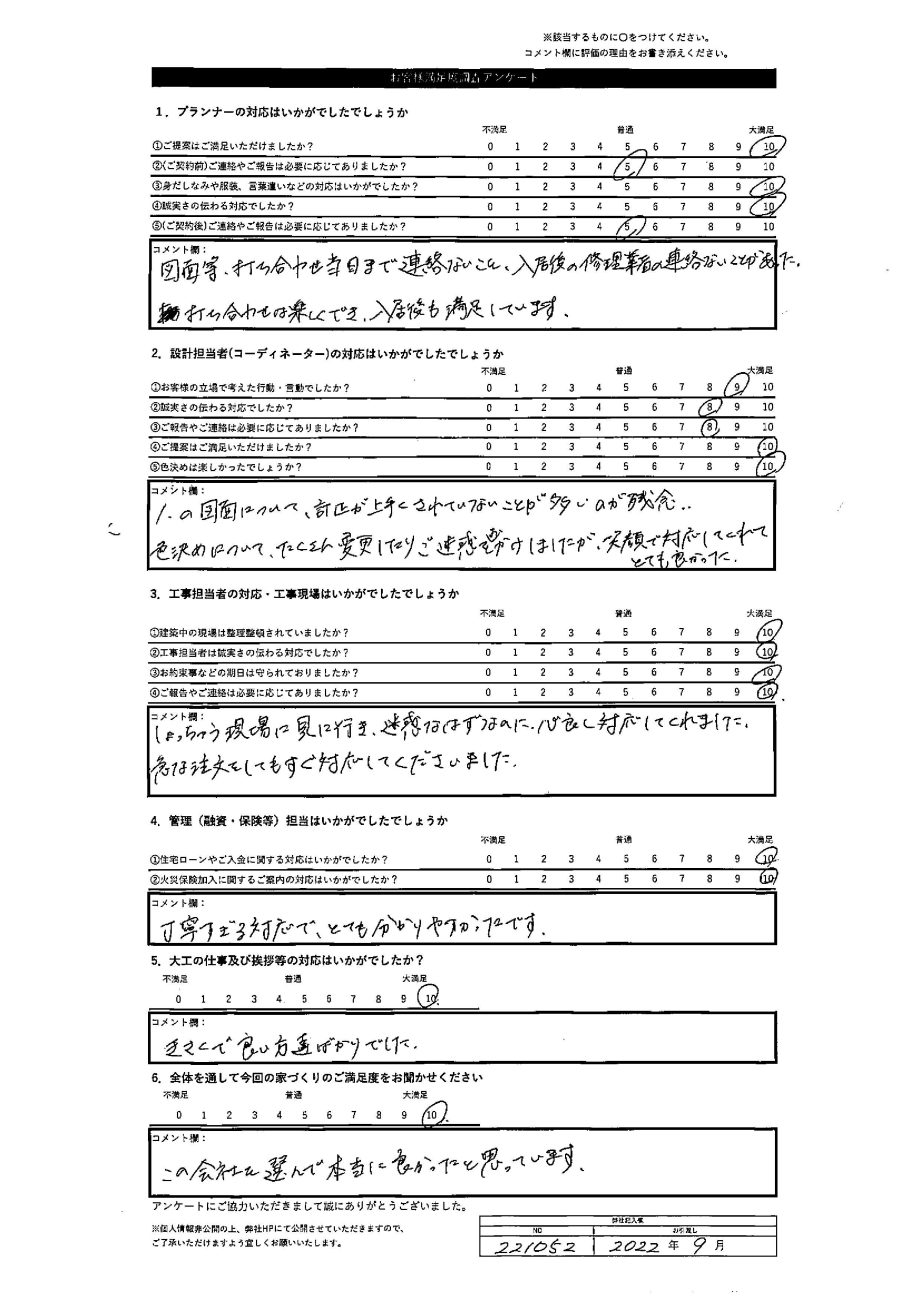 ※該当するものに〇をつけてください。
コメント欄に評価の理由をお書き添えください。
お客様満足度調査アンケート
1．プランナーの対応はいかがでしたでしょうか
不満足 普通 大満足
①ご提案はご満足いただけましたか？ 0 1 2 3 4 5 6 7 8 9 10
②(ご契約前)ご連絡やご報告は必要に応じてありましたか？ 0 1 2 3 4 5 6 7 8 9 10
③身だしなみや服装、言葉遣いなどの対応はいかがでしたか？ 0 1 2 3 4 5 6 7 8 9 10
④誠実さの伝わる対応でしたか？ 0 1 2 3 4 5 6 7 8 9 10
⑤(ご契約後)ご連絡やご報告は必要に応じてありましたか？ 0 1 2 3 4 5 6 7 8 9 10
コメント欄：
図面等、打ち合わせ当日まで連絡ないこと、入居後の修理業者の連絡ないことがあった.
打ち合わせは楽しくでき、入居後も満足しています.
2．設計担当者(コーディネーター)の対応はいかがでしたでしょうか
不満足 普通 大満足
①お客様の立場で考えた行動・言動でしたか？ 0 1 2 3 4 5 6 7 8 9 10
②誠実さの伝わる対応でしたか？ 0 1 2 3 4 5 6 7 8 9 10
③ご報告やご連絡は必要に応じてありましたか？ 0 1 2 3 4 5 6 7 8 9 10
④ご提案はご満足いただけましたか？ 0 1 2 3 4 5 6 7 8 9 10
⑤色決めは楽しかったでしょうか？ 0 1 2 3 4 5 6 7 8 9 10
コメント欄：
1.の図面について、訂正が上手くされていないことが多いのが残念..
色決めについて、たくさん変更したりご迷惑を掛けましたが、笑顔で対応してくれて
とても良かった.
3．工事担当者の対応・工事現場はいかがでしたでしょうか
不満足 普通 大満足
①建築中の現場は整理整頓されていましたか？ 0 1 2 3 4 5 6 7 8 9 10
②工事担当者は誠実さの伝わる対応でしたか？ 0 1 2 3 4 5 6 7 8 9 10
③お約束事などの期日は守られておりましたか？ 0 1 2 3 4 5 6 7 8 9 10
④ご報告やご連絡は必要に応じてありましたか？ 0 1 2 3 4 5 6 7 8 9 10
コメント欄：
しょっちゅう現場に見に行き、迷惑なはずなのに、心良く対応してくれました.
急な注文をしてもすぐ対応してくださいました.
4．管理（融資・保険等）担当はいかがでしたでしょうか
不満足 普通 大満足
①住宅ローンやご入金に関する対応はいかがでしたか？ 0 1 2 3 4 5 6 7 8 9 10
②火災保険加入に関するご案内の対応はいかがでしたか？ 0 1 2 3 4 5 6 7 8 9 10
コメント欄：
丁寧すぎる対応で、とても分かりやすかったです.
5．大工の仕事及び挨拶等の対応はいかがでしたか？
不満足 普通 大満足
0 1 2 3 4 5 6 7 8 9 10
コメント欄：
きさくで良い方達ばかりでした.
6．全体を通して今回の家づくりのご満足度をお聞かせください
不満足 普通 大満足
0 1 2 3 4 5 6 7 8 9 10
コメント欄：
この会社を選んで本当に良かったと思っています.
アンケートにご協力いただきまして誠にありがとうございました。
※個人情報非公開の上、弊社HPにて公開させていただきますので、
ご了承いただけますよう宜しくお願いいたします。
弊社記入欄
NO お引渡し
221052 2022 年 9 月